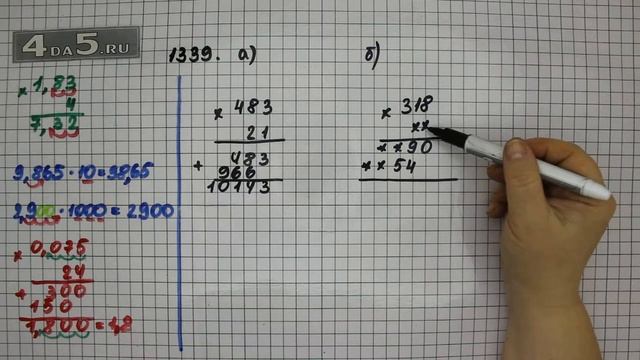 4DA5.RU
1339. а) б)
× 1,83
4
7,32
9,865 · 10 = 98,65
2,900 · 1000 = 2900
× 0,075
24
+ 300
150
1,800 = 1,8
× 483
21
+ 483
966
10143
× 318
**
**90
**54